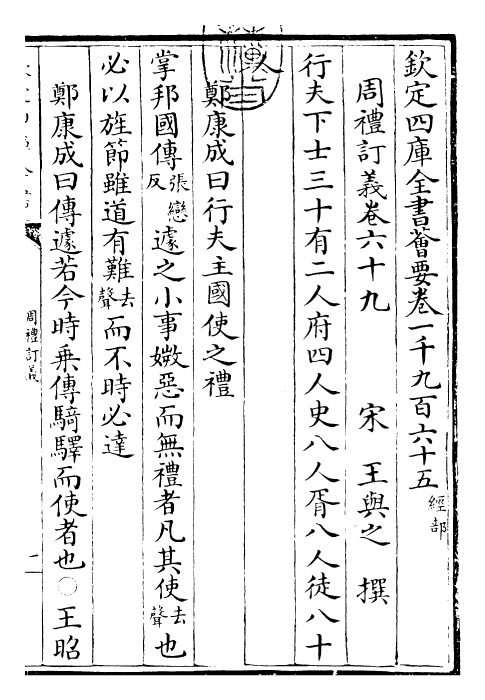 欽定四庫全書薈要卷一千九百六十五經部
周禮訂義卷六十九 宋 王與之 撰
行夫下士三十有二人府四人史八人胥八人徒八十
人
鄭康成曰行夫主國使之禮
掌邦國傳張戀反遽之小事媺惡而無禮者凡其使去聲也
必以旌節雖道有難去聲而不時必達
鄭康成曰傳遽若今時乗傳騎驛而使者也○王昭
周禮訂義
一